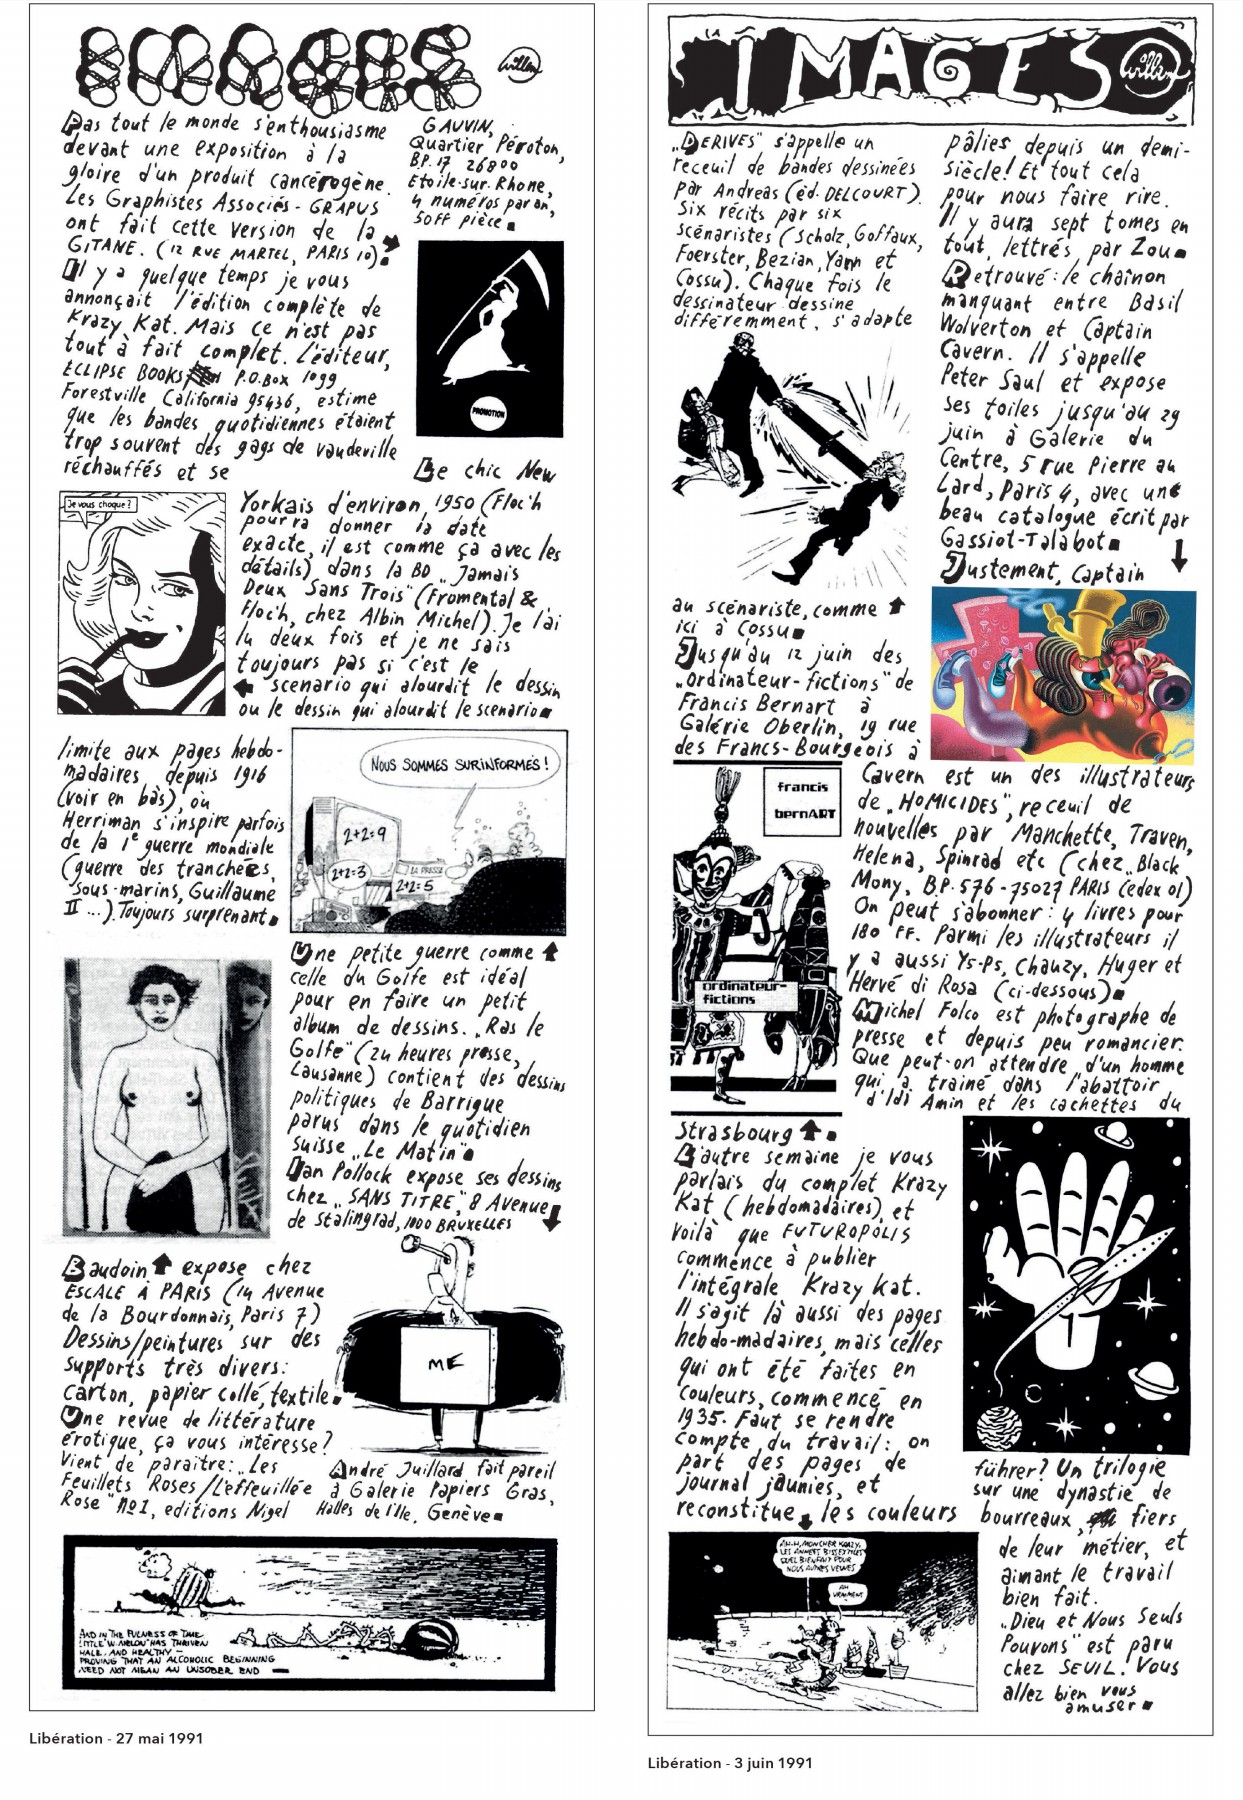 IMAGES
Willem
Pas tout le monde s'enthousiasme
devant une exposition à la
gloire d'un produit cancérogène.
Les Graphistes Associés - GRAPUS
ont fait cette version de la
GITANE. (12 RUE MARTEL, PARIS 10)
Il y a quelque temps je vous
annonçait l'édition complète de
Krazy Kat. Mais ce n'est pas
tout à fait complet. L'éditeur,
ECLIPSE BOOKS P.O.Box 1099
Forestville California 95436, estime
que les bandes quotidiennes étaient
trop souvent des gags de vaudeville
réchauffés et se
limite aux pages hebdo-
madaires depuis 1916
(voir en bas), où
Herriman s'inspire parfois
de la 1e guerre mondiale
(guerre des tranchées,
sous-marins, Guillaume
II ...). Toujours surprenant
Baudoin expose chez
ESCALE À PARIS (14 Avenue
de la Bourdonnais, Paris 7)
Dessins/peintures sur des
supports très divers:
carton, papier collé, textile
Une revue de littérature
érotique, ça vous intéresse?
Vient de paraitre: „Les
Feuillets Roses/L'effeuillée
Rose" №1, editions Nigel
GAUVIN,
Quartier Péroton,
BP. 17 26800
Etoile-sur-Rhone,
4 numéros par an,
50FF pièce
PROMOTION
Le chic New
Yorkais d'environ 1950 (Floc'h
pourra donner la date
exacte, il est comme ça avec les
détails) dans la BD „Jamais
Deux Sans Trois" (Fromental &
Floc'h, chez Albin Michel). Je l'ai
lu deux fois et je ne sais
toujours pas si c'est le
scenario qui alourdit le dessin
ou le dessin qui alourdit le scenario
Je vous choque?
NOUS SOMMES SURINFORMÉS!
2+2=9
2+2=3
LA PRESSE
2+2=5
Une petite guerre comme
celle du Golfe est idéal
pour en faire un petit
album de dessins. „Ras le
Golfe" (24 heures presse,
Lausanne) contient des dessins
politiques de Barrigue
parus dans le quotidien
suisse „Le Matin"
Ian Pollock expose ses dessins
chez „SANS TITRE", 8 Avenue
de Stalingrad, 1000 BRUXELLES
ME
André Juillard fait pareil
à Galerie Papiers Gras,
Halles de l'Ile, Genève
AND IN THE FULNESS OF TIME
LITTLE "W. MELON" HAS THRIVEN
HALE AND HEALTHY —
PROVING THAT AN ALCOHOLIC BEGINNING
NEED NOT MEAN AN UNSOBER END
Libération - 27 mai 1991
IMAGES
Willem
„DERIVES" s'appelle un
receuil de bandes dessinées
par Andreas (éd. DELCOURT).
Six récits par six
scénaristes (Scholz, Goffaux,
Foerster, Bezian, Yann et
Cossu). Chaque fois le
dessinateur dessine
différemment, s'adapte
au scénariste, comme
ici à Cossu
Jusqu'au 12 juin des
„ordinateur-fictions" de
Francis Bernart à
Galérie Oberlin, 19 rue
des Francs-Bourgeois à
francis
bernART
ordinateur-
fictions
Strasbourg
L'autre semaine je vous
parlais du complet Krazy
Kat (hebdomadaires), et
voilà que FUTUROPOLIS
commence à publier
l'intégrale Krazy Kat.
Il s'agit là aussi des pages
hebdo-madaires, mais celles
qui ont été faites en
couleurs, commencé en
1935. Faut se rendre
compte du travail: on
part des pages de
journal jaunies, et
reconstitue les couleurs
AH-H, MON CHER KRAZY,
LES ANNÉES BISSEXTILES
QUEL BIENFAIT POUR
NOUS AUTRES VEUVES
AH
VRAIMENT
pâlies depuis un demi-
siècle! Et tout cela
pour nous faire rire.
Il y aura sept tomes en
tout, lettrés par Zou
Retrouvé: le chaînon
manquant entre Basil
Wolverton et Captain
Cavern. Il s'appelle
Peter Saul et expose
ses toiles jusqu'au 29
juin à Galerie du
Centre, 5 rue Pierre au
Lard, Paris 4, avec une
beau catalogue écrit par
Gassiot-Talabot
Justement, Captain
Cavern est un des illustrateurs
de „HOMICIDES", receuil de
nouvelles par Manchette, Traven,
Helena, Spinrad etc (chez „Black
Mony, B.P. 576 - 75027 PARIS Cedex 01)
On peut s'abonner: 4 livres pour
180 FF. Parmi les illustrateurs il
y a aussi Ys-Ps, Chauzy, Huger et
Hervé di Rosa (ci-dessous)
Michel Folco est photographe de
presse et depuis peu romancier.
Que peut-on attendre d'un homme
qui a trainé dans l'abattoir
d'Idi Amin et les cachettes du
führer? Un trilogie
sur une dynastie de
bourreaux, fiers
de leur métier, et
aimant le travail
bien fait.
„Dieu et Nous Seuls
Pouvons" est paru
chez SEUIL. Vous
allez bien vous
amuser
Libération - 3 juin 1991